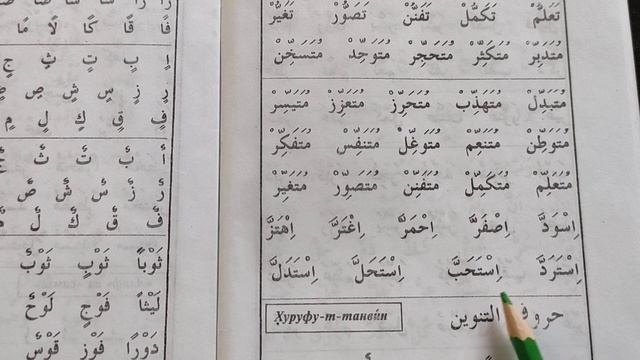 تَعَلُّمْ تَكَمُّلْ تَفَنُّنْ تَصَوُّرْ تَغَيُّرْ
مُتَدَبِّرْ مُتَكَثِّرْ مُتَحَجِّرْ مُتَوَحِّدْ مُتَسَخِّنْ
مُتَبَدِّلْ مُتَهَذِّبْ مُتَحَرِّزْ مُتَعَزِّزْ مُتَيَسِّرْ
مُتَوَطِّنْ مُتَنَعِّمْ مُتَوَغِّلْ مُتَنَفِّسْ مُتَفَكِّرْ
مُتَعَلِّمْ مُتَكَمِّلْ مُتَفَنِّنْ مُتَصَوِّرْ مُتَغَيِّرْ
اِسْوَدَّ اِصْفَرَّ اِحْمَرَّ اِغْتَرَّ اِهْتَزَّ
اِسْتَرَدَّ اِسْتَحَبَّ اِسْتَحَلَّ اِسْتَدَلَّ
حروف التنوين Ҳуруфу-т-танвӣн
فًا قًا كًا لًا مًا
إٍ بٍ تٍ ثٍ جٍ
رٍ زٍ سٍ شٍ صٍ
فٍ قٍ كٍ لٍ مٍ
أٌ بٌ تٌ ثٌ
رٌ زٌ سٌ شٌ صٌ
فٌ قٌ كٌ لٌ
ثَوْبًا ثَوْبٍ ثَوْبٌ
لَيْثًا فَوْجٍ لَوْحٌ
دَوْرًا فَوْزٍ قَوْسٌ